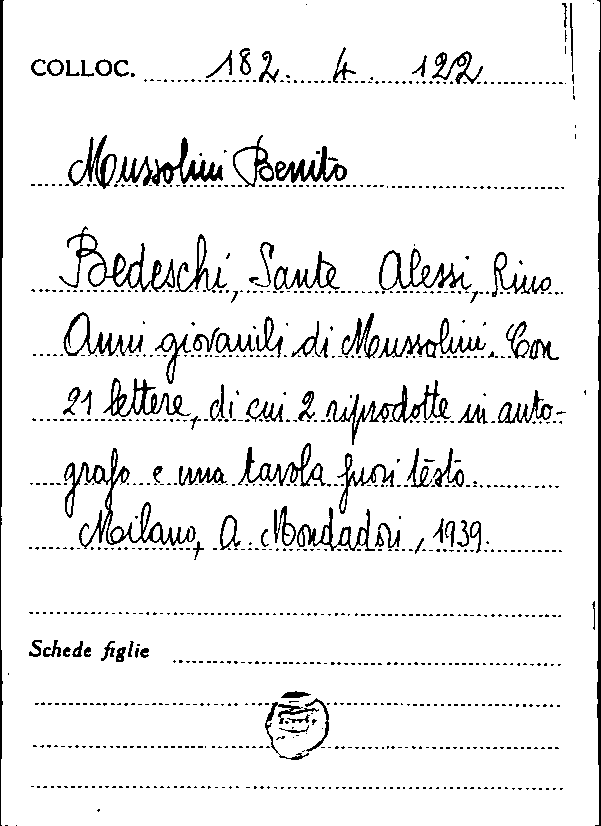 COLLOC. 182. 4. 122
Mussolini Benito
Bedeschi, Sante Alessi, Rino
Anni giovanili di Mussolini. Con
21 lettere, di cui 2 riprodotte in auto-
grafo e una tavola fuori testo.
Milano, A. Mondadori, 1939.
Schede figlie